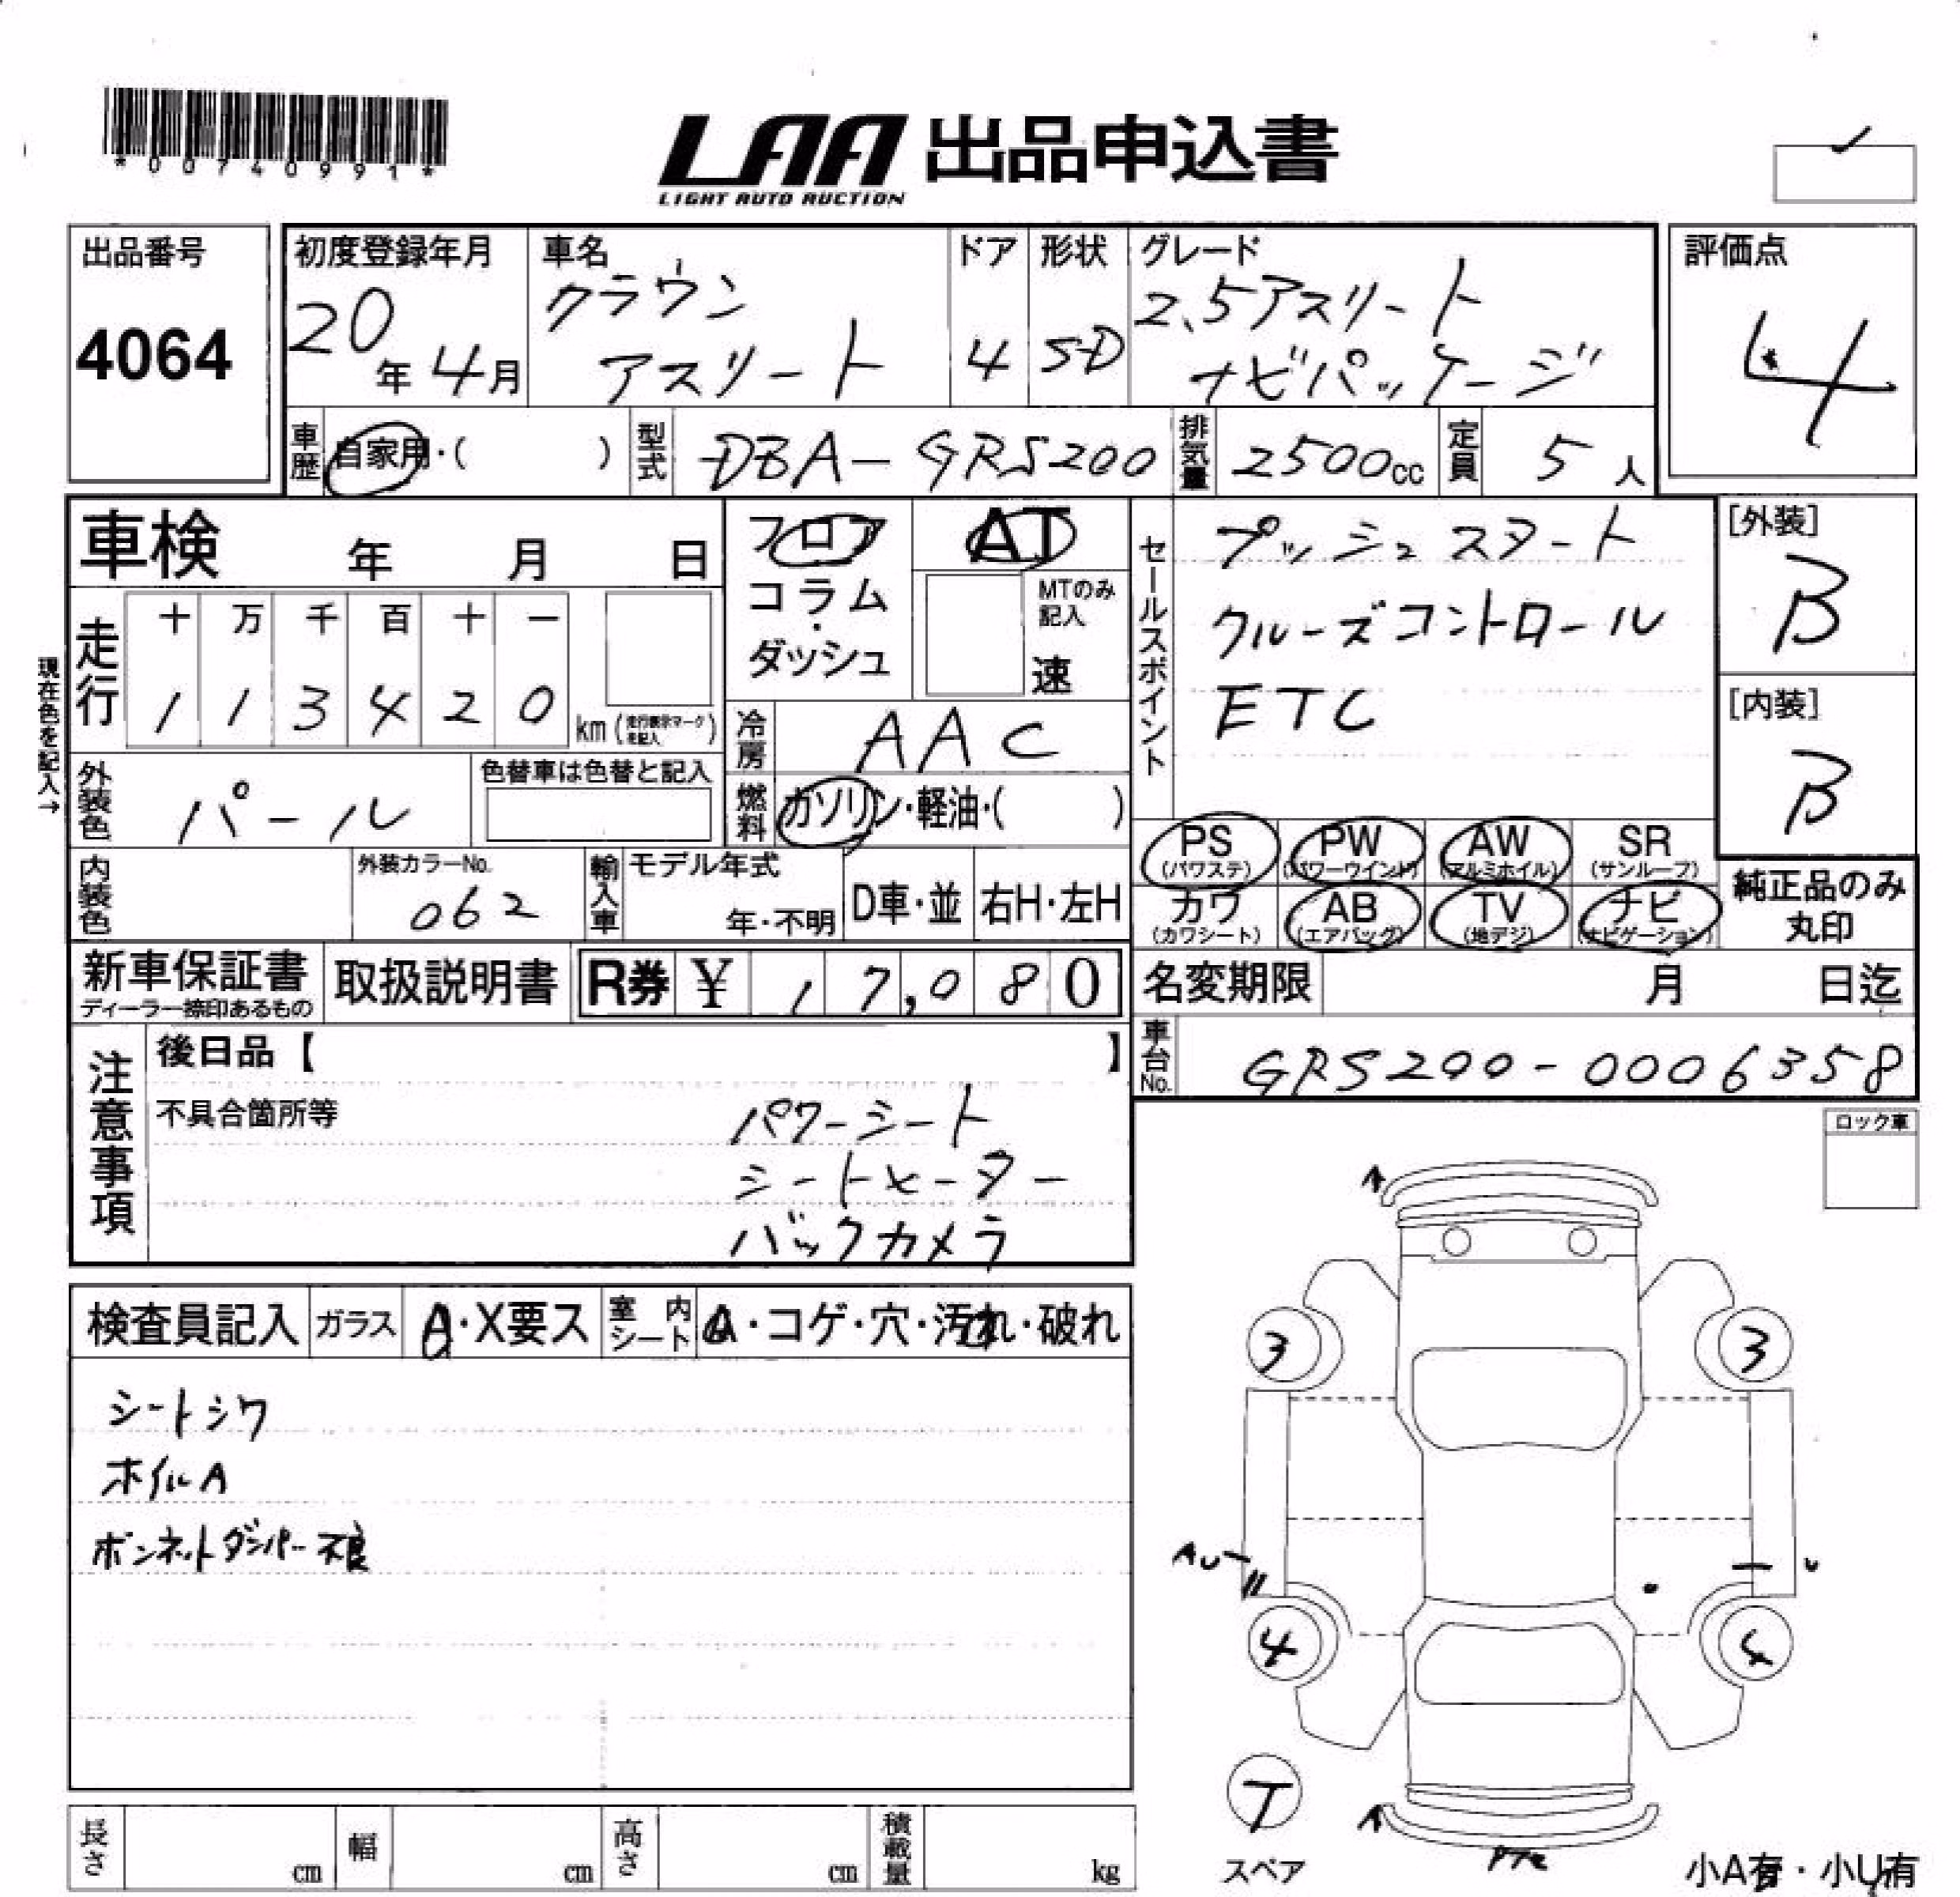 *00740991*
LAA 出品申込書
LIGHT AUTO AUCTION
出品番号
4064
初度登録年月
20年 4月
車名
クラウン
アスリート
ドア
4
形状
S-D
グレード
2.5アスリート
ナビパッケージ
評価点
4
車歴
自家用・( )
型式
DBA-GRS200
排気量
2500cc
定員
5人
車検 年 月 日
フロア
コラム
・
ダッシュ
AT
MTのみ
記入
速
セールスポイント
プッシュスタート
クルーズコントロール
ETC
[外装]
B
[内装]
B
現在色を記入→
走行
十 万 千 百 十 一
1 1 3 4 2 0
km (走行表示マーク
を記入)
冷房
AAC
外装色
パール
色替車は色替と記入
燃料
ガソリン・軽油・( )
PS
(パワステ)
PW
(パワーウインド)
AW
(アルミホイル)
SR
(サンルーフ)
カワ
(カワシート)
AB
(エアバッグ)
TV
(地デジ)
ナビ
(ナビゲーション)
純正品のみ
丸印
内装色
外装カラーNo.
062
輸入車
モデル年式
年・不明
D車・並
右H・左H
新車保証書
ディーラー捺印あるもの
取扱説明書
R券 ¥ 17,080
名変期限 月 日迄
車台No.
GRS200-0006358
注意事項
後日品【 】
不具合箇所等
パワーシート
シートヒーター
バックカメラ
ロック車
検査員記入
ガラス
A・X要ス
室内
シート
A・コゲ・穴・汚れ・破れ
シートシワ
ホイルA
ボンネットダンパー不良
3
3
AU
U
4
4
T
スペア
小A有・小U有
長さ cm
幅 cm
高さ cm
積載量 kg